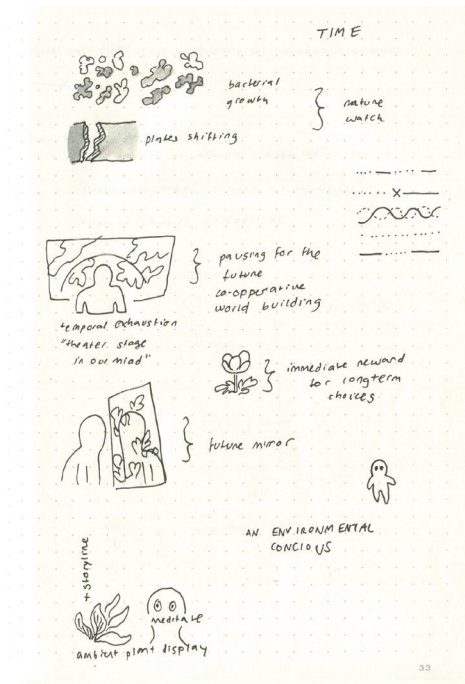 TIME
bacterial
growth
nature
watch
plates shifting
pausing for the
future
co-opperative
world building
temporal exhaustion
"theater stage
in our mind"
immediate reward
for longterm
choices
future mirror
AN ENVIRONMENTAL
CONCIOUS
+ storyline
meditate
ambient plant display
33